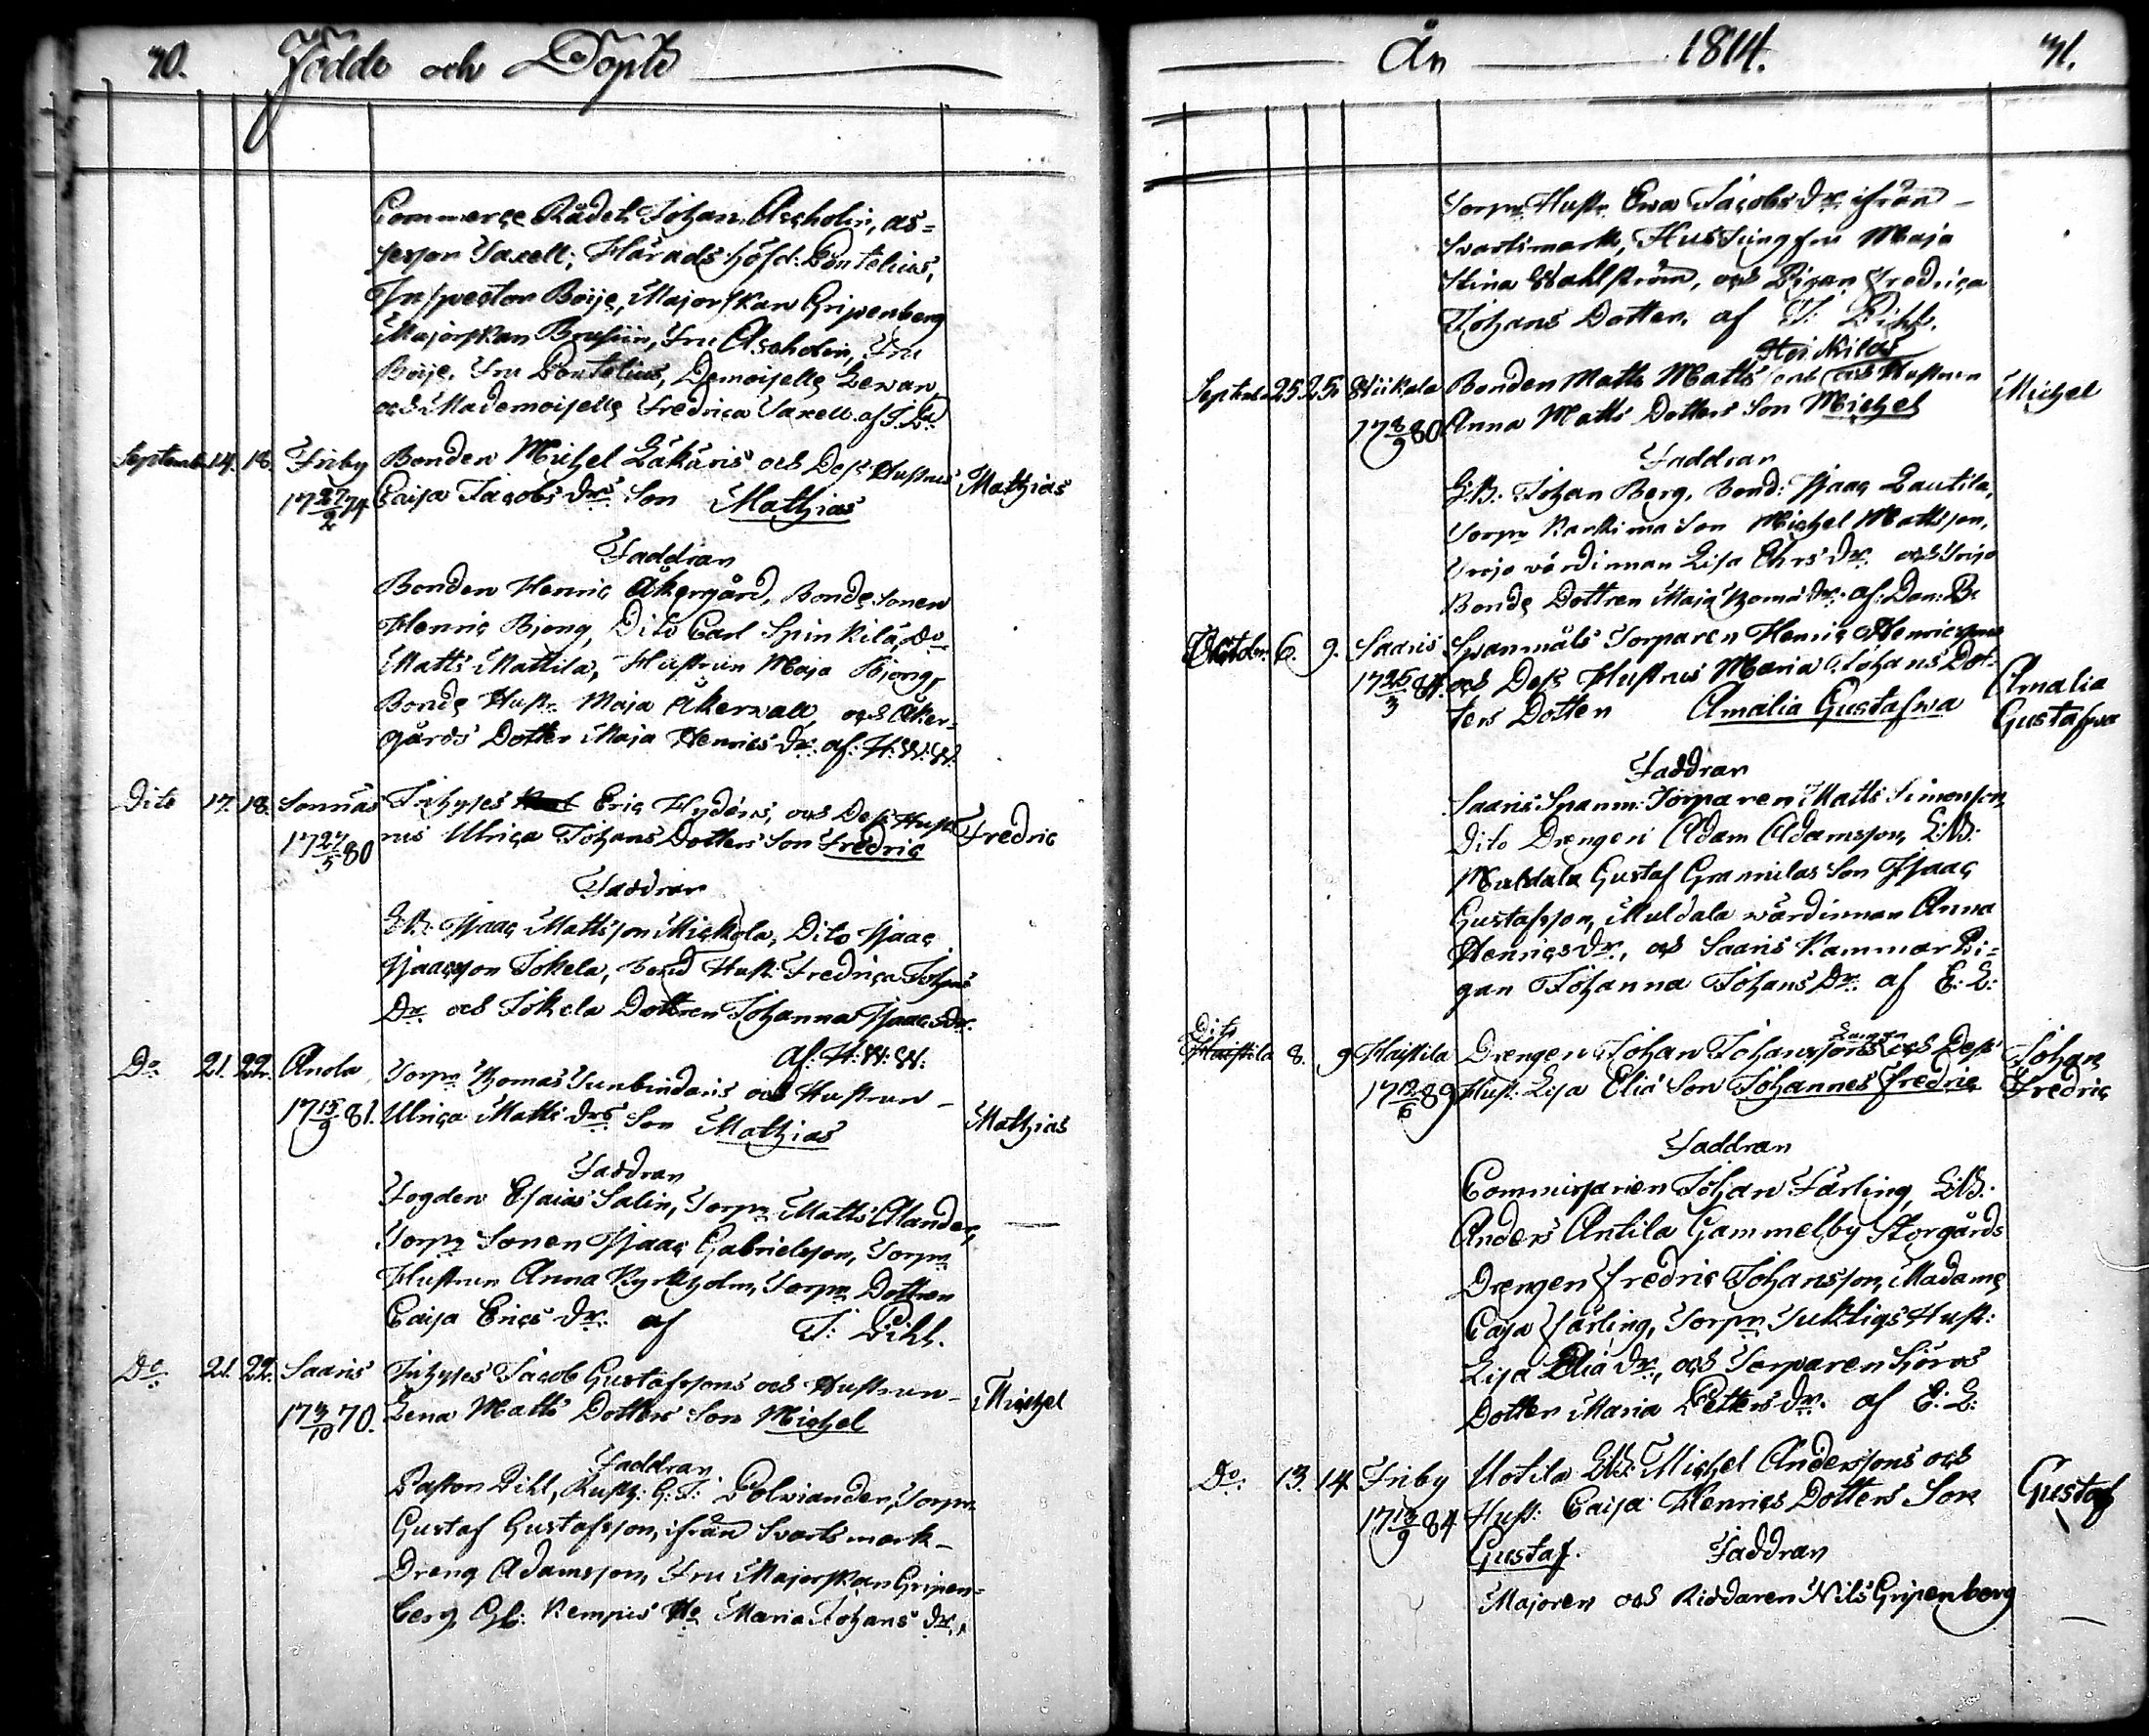 70. Födde och Döpte
Commerce Rådet Johan Ascholin, as=
sessor Taxell, Härads höfd: Pontelius,
Inspector Böije, Majorskan Gripenberg
Majorskan Brusiin, Fru Ascholin, Fru
Böije, Fru Pontelius, Demoiselle Lewan
och Mademoiselle Fredrica Taxell. af J. L.
Septemb. 14. 18. Friby Bonden Michel Zakaris och Dess Hustrus Mathias
17 27/2 74 Caisa Jacobs Drs Son Mathias
Faddrar
Bonden Henric Åkergård, Bonde Sonen
Henric Bjong, Dito Carl Spinkilä, Do
Matts Mattila, Hustrun Maja Bjong,
Bonde Hustr. Maja Åkerwall, och Åker=
gårds Dotter Maja Henrics Dr. af: H: W: W.
Dito 17. 18. Sonnäs Inhyses Eric Hydéns, och Dess Hust= Fredric
17 27/5 80 rus Ulrica Johans Dotters Son Fredric
Faddrar
Isaac Mattsson Mickola, Dito Isaac
Isaacsson Jokela, Bond Hust. Fredrica Johans
Dr. och Jokela Dottren Johanna Isaacs Dr.
af: H: W: W:
Do 21. 22. Anola Torpr Thomas Sunbindaris och Hustrun
17 15/9 81. Ulrica Matts Drs Son Mathias Mathias
Faddrar
Fogden Esaias Salin, Torpr Matts Alander,
Torpr Sonen Isaac Gabrielsson, Torpr
Hustrun Anna Kyrkholm, Torpr Dottren
Caisa Erics Dr. af J: Pihl.
Do 21. 22. Saaris Inhyses Jacob Gustafssons och Hustrun
17 3/10 70. Lena Matts Dotters Son Michel Michel
Faddrar
Pastor Pihl, Rusth: G: J: Polviander, Torpr
Gustaf Gustafsson, ifrån Svartsmark
Dreng Adamsson, Fru Majorskan Gripen=
berg, Kempis Ho Maria Johans Dr,
År 1814. 71.
Torpr Hustr. Ewa Jacobs Dr. ifrån
Svartsmark, Hus Jungfru Maja
Stina Wahlström, och Pigan Fredrica
Johans Dotter. af J: Pihl.
Heikilas
Septemb. 25 25 Bonden Matts Matts sons och Hustrun Michel
17 8/9 80 Anna Matts Dotters Son Michel
Faddrar
Johan Berg, Bond: Isaac Lautila,
Torpr Karkimaa Son Michel Mattsson,
värdinnan Lisa Ehrs Dr. och
Bonde Dottren Maja Thomæ Dr. af: Dan: B.
Octobr. 6. 9. Saaris Spanmåls Torparen Henric Henricssons
17 25/3 84. och Dess Hustrus Maria Johans Dot= Amalia
ters Dotter Amalia Gustafwa Gustafwa
Faddrar
Saaris Spanm: Torparen Matts Simonson,
Dito Drengen Adam Adamsson,
Muldala Gustaf Granvilas Son Isaac
Gustafsson, Muldala wärdinnan Anna
Henrics Dr., och Saaris Kammar Pi=
gan Johanna Johans Dr. af E: L:
Dito 8. 9 Haistila Drengen Johan Johanssons och Dess Johan
17 12/6 89 Hust. Lisa Eliæ Son Johannes Fredric Fredric
Faddrar
Commissarien Johan Färling,
Anders Antila Gammelby Storgårds
Drengen Fredric Johansson, Madame
Casa Färling, Torpr Juktigs Hust:
Lisa Eliæ Dr., och Torparen Sjöros
Dotter Maria Petters Dr. af E: L:
Do 13. 14. Friby Uotila Michel Anderssons och
17 13/9 84 Hust. Caisa Henrics Dotters Son Gustaf
Gustaf. Faddrar
Majoren och Riddaren Nils Gripenberg